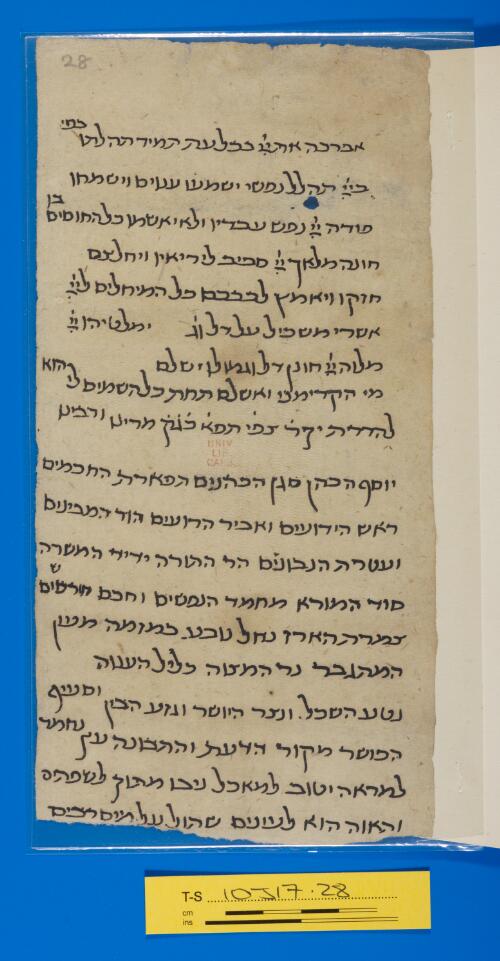 28
אברכה את ייי בכל עת תמיד תהלתו בפי
בייי תהלל נפשי ישמעו ענוים וישמחו
פודה ייי נפש עבדיו ולא יאשמו כל החוסים בו
חונה מלאך ייי סביב ליריאיו ויחלצם
חזקו ויאמץ לבבכם כל המיחלים לייי
אשרי משכיל על דל וג ימלטיהו ייי
מלוה ייי חונן דל וגמולו ישלם
מי הקדימני ואשלם תחת כל השמים לי הוא
להדרת יקר צפי תפא כגק מרינו ורבינו
יוסף הכהן סגן הכהנים תפארת החכמים
ראש הידועים ואביר הרועים הוד המבינים
ועטרת הנבונים הר התורה ידיד המשרה
סוד המורא מחמד הנפשים וחכם חרשים
צמרת הארז נחל נובע כמזמה מעין
המתגבר נר המצוה כליל הענוה
נטע השכל ונצר היושר וגזע הבין וסעיף
הכושר מקור הדעת והתבונה עץ נחמד
למראה וטוב למאכל ניבו מתוק לשפתים
והאוה הוא לעינים שהולו על מים רבים
UNIV
LIB
CAMB
T-S 10J17.28
cm
ins